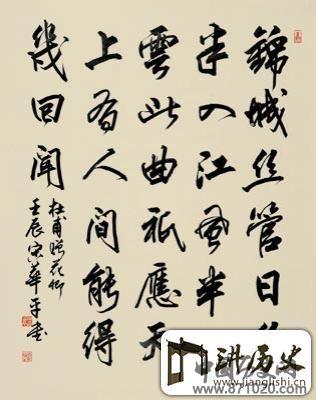 錦城丝管日
半入江風半
雲此曲祇應天
上有人間能得
幾回聞
杜甫贈花卿
壬辰宋華平書
讲历史
www.jianglishi.cn
www.871020.com